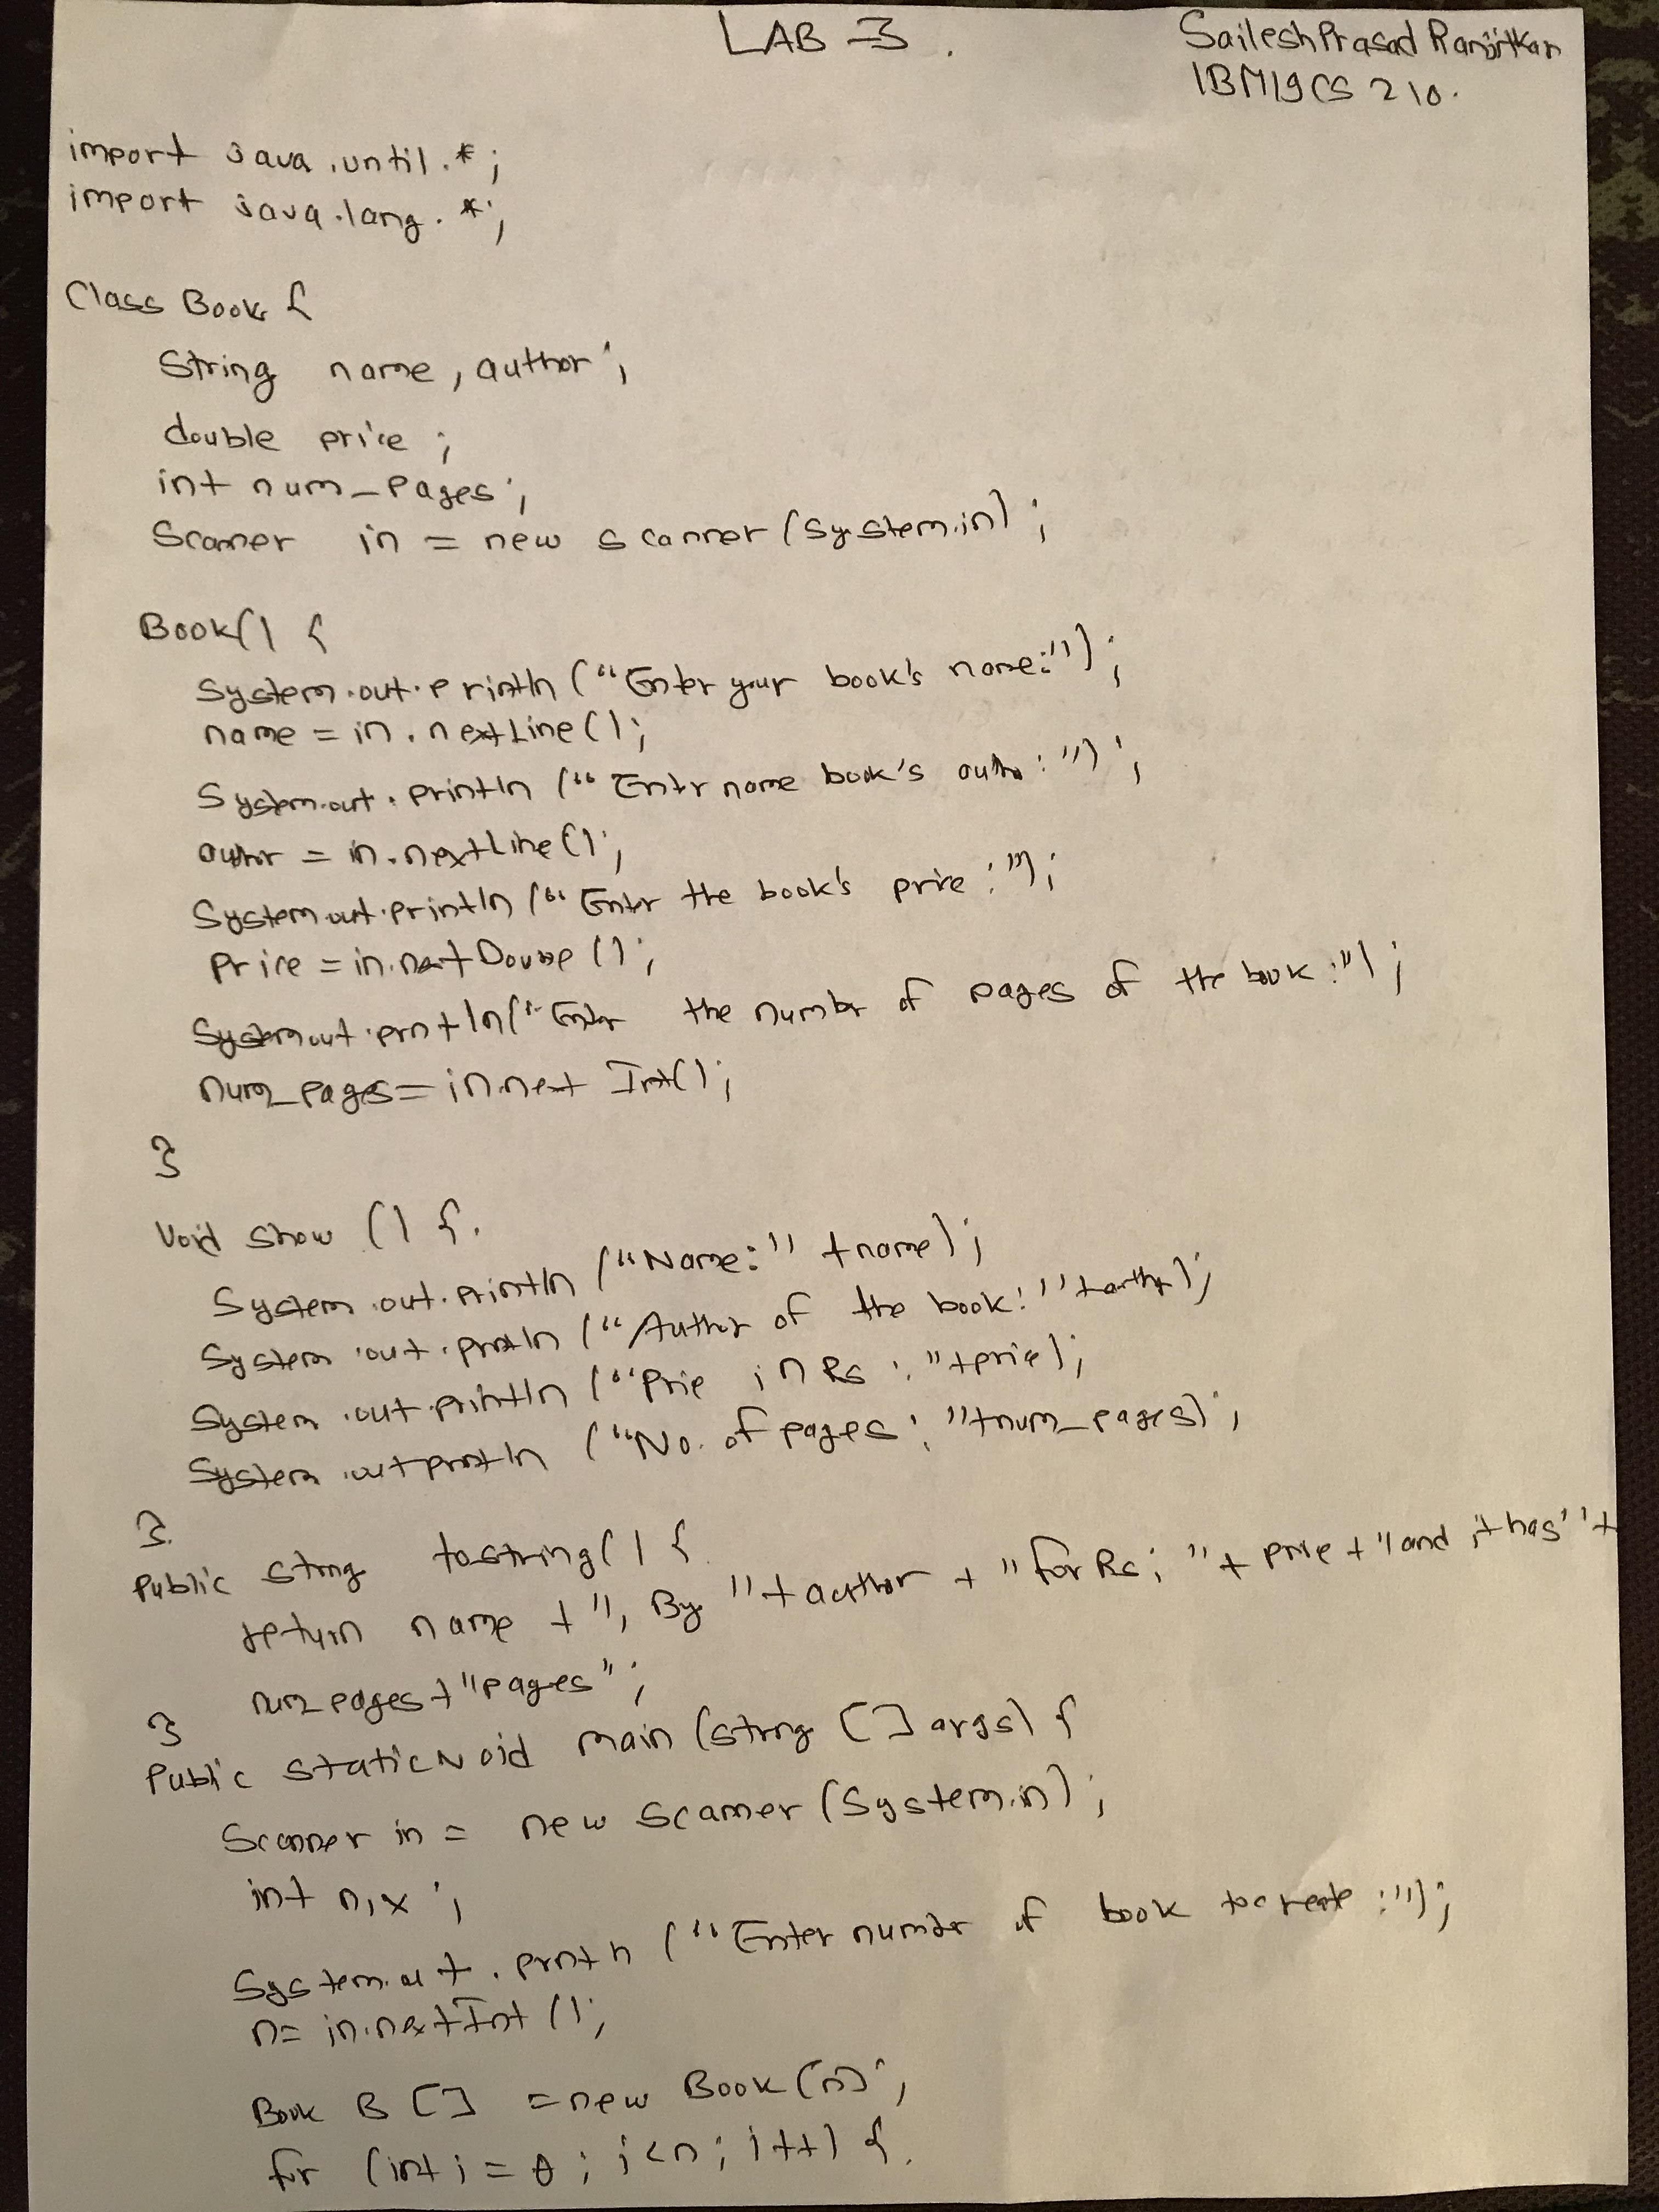 LAB-3.
Sailesh Prasad Ranjitkar
1BM19CS210.
import java.until.*;
import java.lang.*;
Class Book {
String name, author;
double price;
int num_Pages;
Scanner in = new scanner(System.in);
Book() {
System.out.println ("Enter your book's name:");
name = in.nextLine();
System.out.println ("Enter name book's author:");
author = in.nextLine();
System.out.println ("Enter the book's price:");
Price = in.nextDouble();
System.out.println("Enter the number of pages of the book:");
num_pages = in.next Int();
}
Void show () {.
System.out.println ("Name:" +name);
System.out.println ("Author of the book:"+author);
System.out.println ("Price in Rs:"+price);
System.outprintln ("No. of pages:"+num_pages);
}.
Public string tostring() {
return name +", By "+author + "for Rs; "+ price +"and it has"+
num_pages+"pages";
}
Public static void main (string [] args) {
Scanner in = new Scanner (System.in);
int n,x;
System.out.println ("Enter number of book to create:");
n= in.nextInt();
Book B [] = new Book [n];
for (int i = 0; i<n; i++) {.